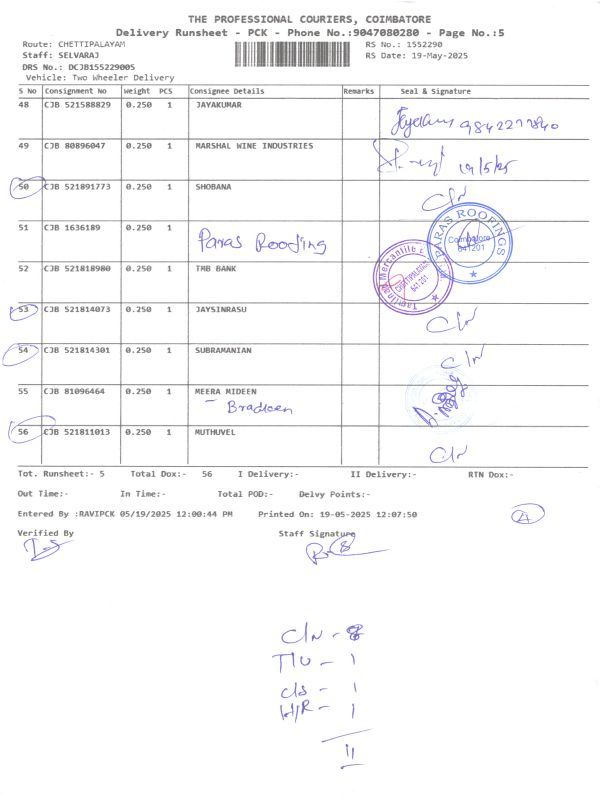 THE PROFESSIONAL COURIERS, COIMBATORE
Delivery Runsheet - PCK - Phone No.:9047080280 - Page No.:5
Route: CHETTIPALAYAM RS No.: 1552290
Staff: SELVARAJ RS Date: 19-May-2025
DRS No.: DCJB155229005
Vehicle: Two Wheeler Delivery
S No Consignment No Weight PCS Consignee Details Remarks Seal & Signature
48 CJB 521588829 0.250 1 JAYAKUMAR
49 CJB 80896047 0.250 1 MARSHAL WINE INDUSTRIES 19/5/25
50 CJB 521891773 0.250 1 SHOBANA C/N
51 CJB 1636189 0.250 1 Paras Roofing PARAS ROOFINGS Coimbatore 641201
52 CJB 521818980 0.250 1 TMB BANK Tamilnad Mercantile CHETTIPALAYAM 641 201
53 CJB 521814073 0.250 1 JAYSINRASU C/N
54 CJB 521814301 0.250 1 SUBRAMANIAN C/N
55 CJB 81096464 0.250 1 MEERA MIDEEN
Bradieen
56 CJB 521811013 0.250 1 MUTHUVEL C/N
Tot. Runsheet:- 5 Total Dox:- 56 I Delivery:- II Delivery:- RTN Dox:-
Out Time:- In Time:- Total POD:- Delvy Points:-
Entered By :RAVIPCK 05/19/2025 12:00:44 PM Printed On: 19-05-2025 12:07:50
Verified By Staff Signature
C/N - 8
T/U - 1
C/S - 1
H/R - 1
11